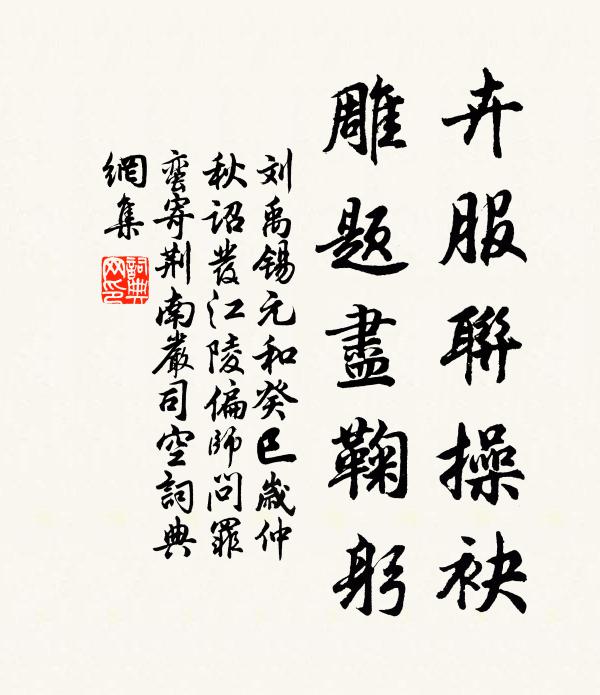 卉服聯操袂
雕题盡鞠躬
刘禹锡元和癸巳歲仲
秋詔發江陵偏師问罪
蛮寄荆南嚴司空詞典
網集
詞典
网印